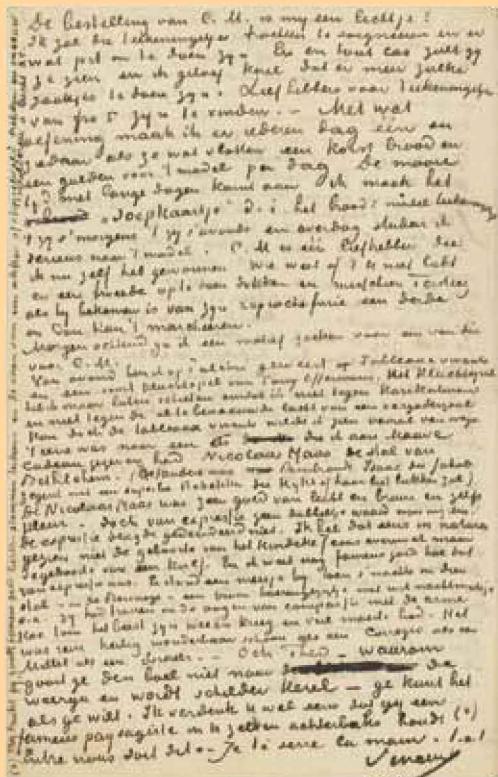 De bestelling van C.M. is my een lichtje!
Ik zal die teekeningetjes trachten te soigneeren en er
wat pit in te doen zyn. En en tout cas zult gy
ze zien en ik geloof kerel dat er meer zulke
zaakjes te doen zyn. Liefhebbers voor teekeningetjes
van fr 5 zyn te vinden. - Met wat
oefening maak ik er iederen dag één en
ziedaar als ze wat vlotten een korst brood en
een gulden voor 't model per dag De mooie
tyd met lange dagen komt aan ik maak het
"soepkaartje" d.i. het brood & model teekening
't zy s'morgens 't zy s'avonds en overdag studeer ik
serieus naar 't model. C.M. is één liefhebber die
ik nu zelf heb gewonnen Wie weet of 't U niet lukt
en een tweede op te doen dokken en misschien Tersteeg
als hy bekomen is van zyn reproche furie een derde
en dan kan 't marcheeren.
Morgen ochtend ga ik een motief zoeken voor een van die
voor C.M.
Van avond ben ik op Pulchri geweest Tableaux vivants
en een soort kluchtspel van Tony Offermans, Het Kluchtspel
heb ik maar laten schieten omdat ik niet tegen karikaturen
en niet tegen de al te benaauwde lucht van een vergaderzaal
kan doch de tableaux vivants wilde ik zien vooral van wege
er een was naar een ets die ik aan Mauve
cadeau gegeven had Nicolaas Maas de stal van
Bethlehem. (Het andere was Rembrandt Isaac die Jakob
zegent met een superbe Rebekka die kykt of haar list lukken zal)
De Nicolaas Maas was zeer goed van licht en bruin en zelfs
kleur. doch van expressie geen dubbeltje waard naar myn zin
de expressie deugde gedecideerd niet. Ik heb dat eens in natura
gezien niet de geboorte van het kindeke Jezus evenwel maar
de geboorte van een kalf. En ik weet nog fameus goed hoe dat
van expressie was. Er stond een meisje by toen s'nachts in dien
stal - in de Borinage - een bruin boerengezigtje met wit nachtmutsje
o.a. Zy had tranen in de oogen van compassie met de arme
koe toen het beest zyn weeën kreeg en veel moeite had. Het
was rein heilig wonderbaar schoon als een Correggio als een
Millet als een Israels. - Och Theo - waarom
gooit ge den boel niet naar de
weerga en wordt schilder Kerel - ge kunt het
als ge wilt. Ik verdenk U wel eens dat gy een
fameus paysagiste in U zelven achterbaks houdt (o)
Entre nous soit dit. Je te serre la main. t. à t
Vincent